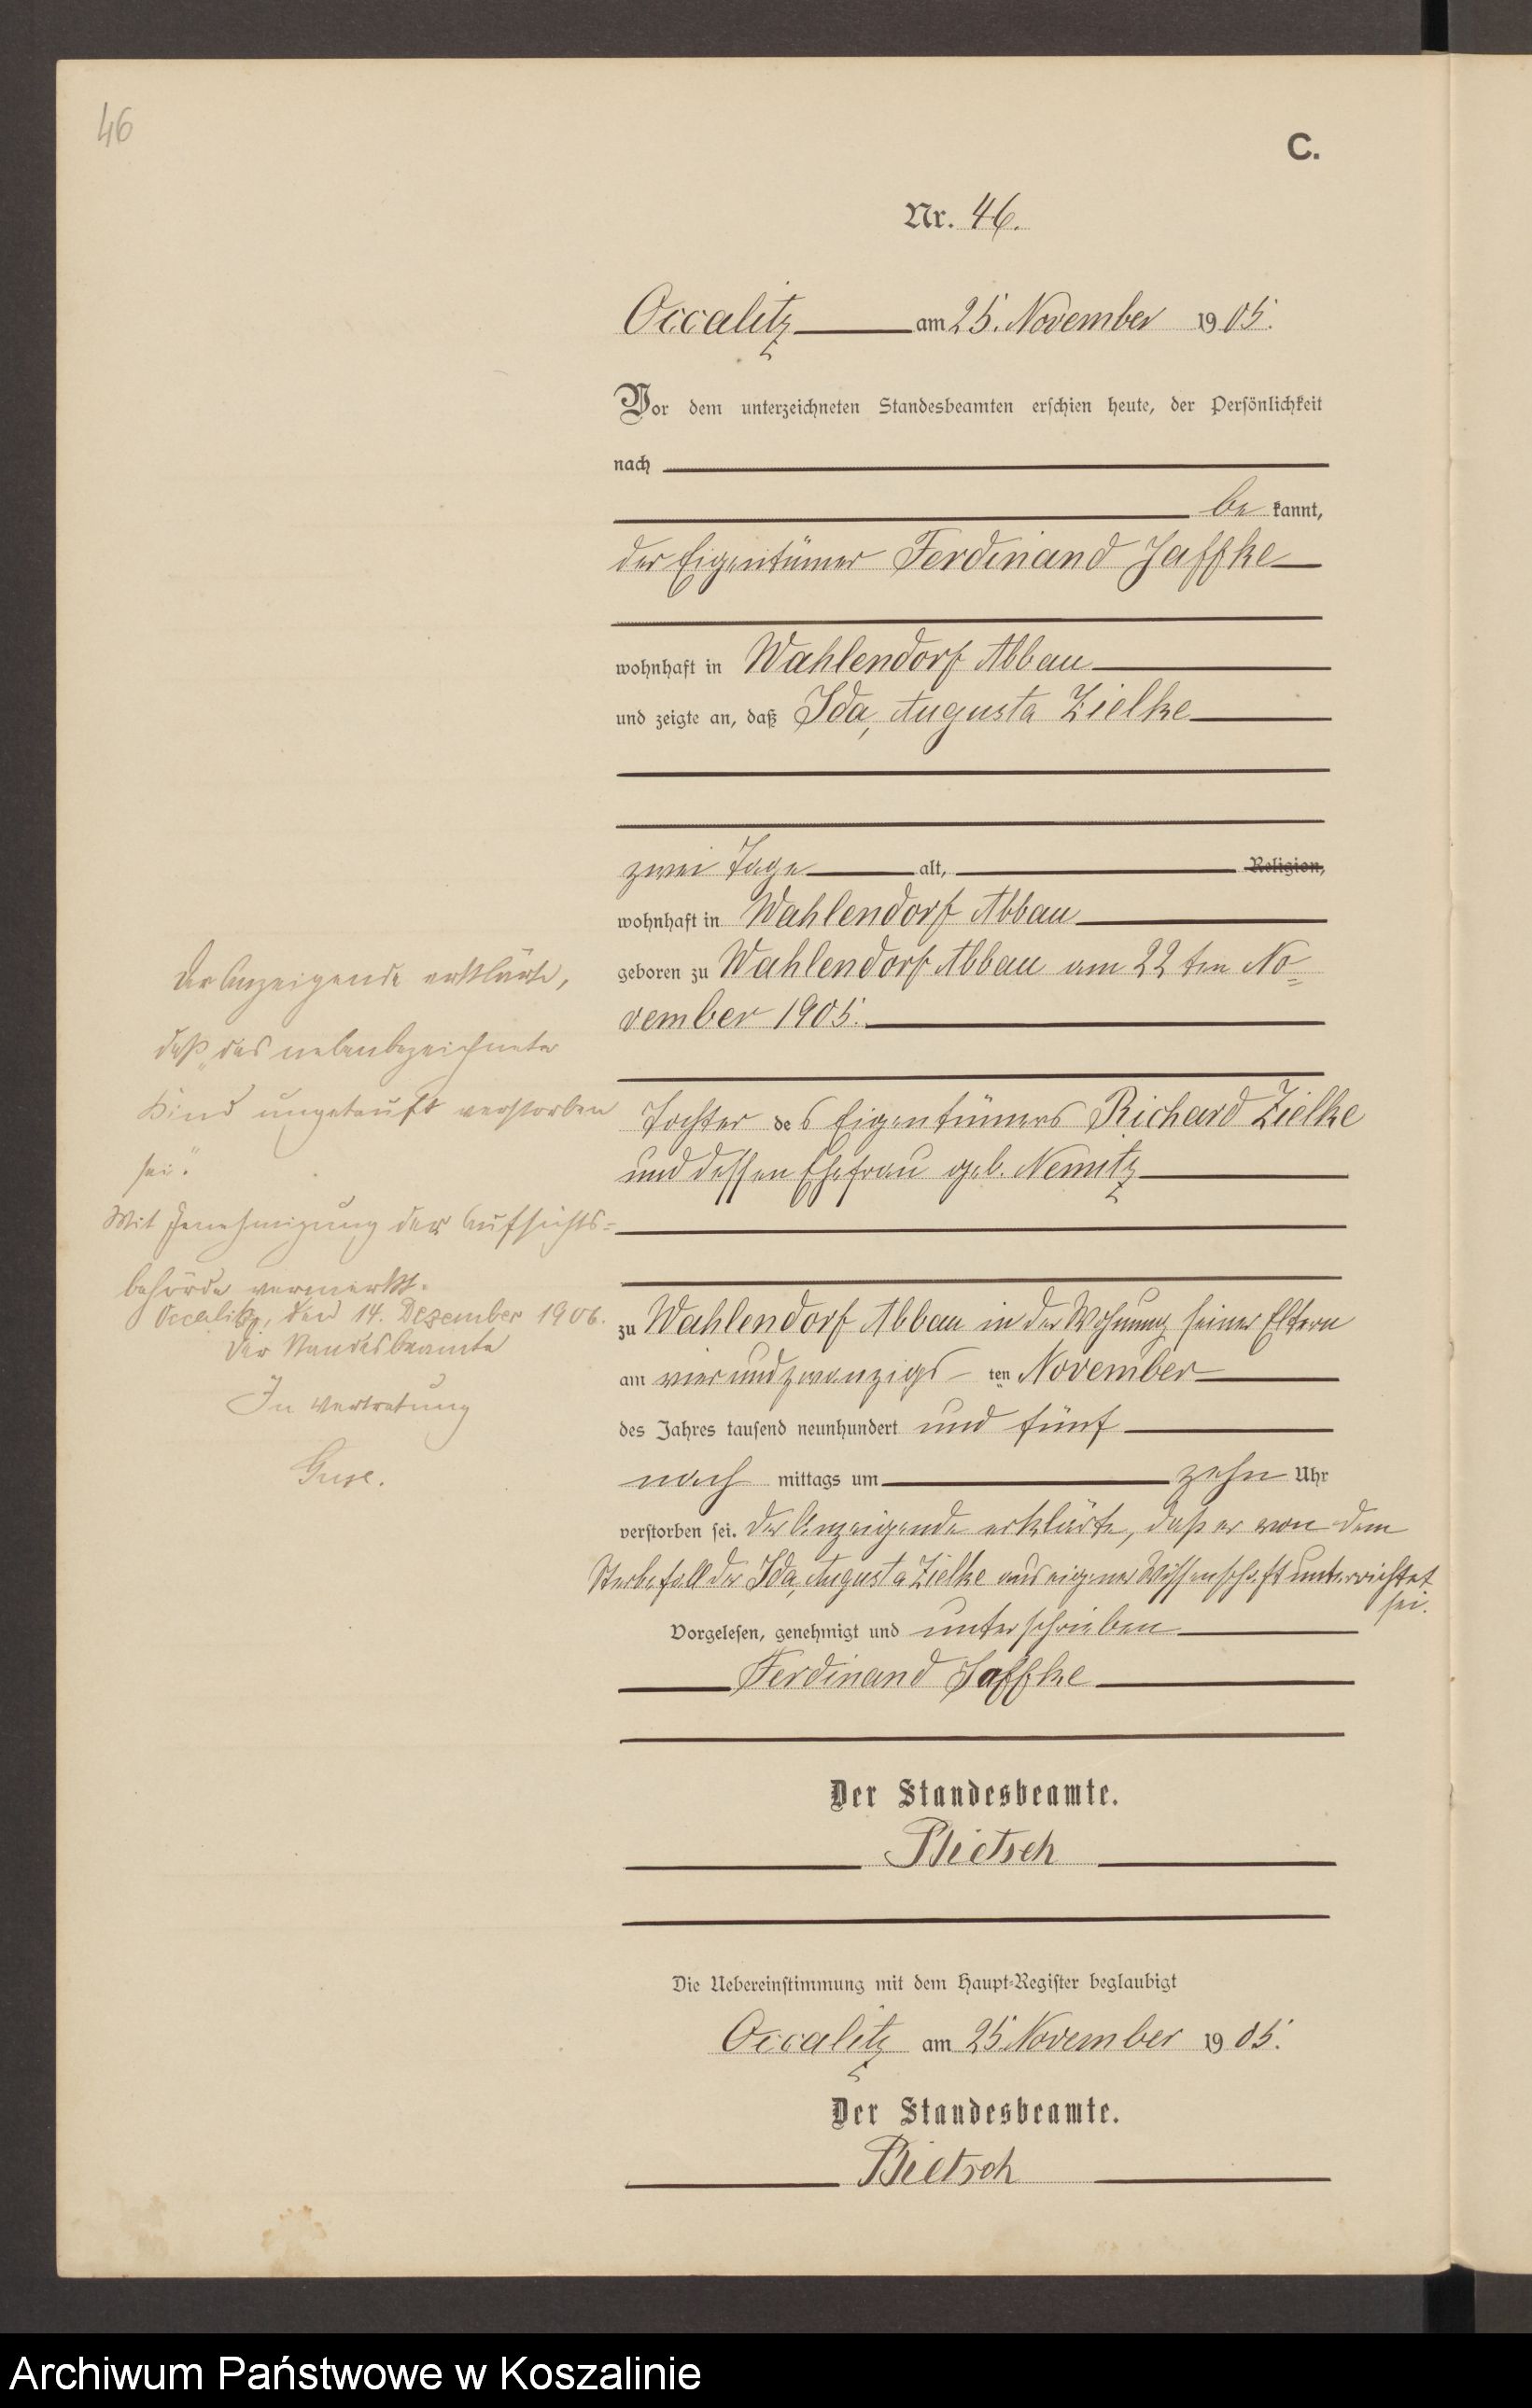 46
C.
Nr. 46.
Occalitz am 25. November 1905.
Vor dem unterzeichneten Standesbeamten erschien heute, der Persönlichkeit
nach
be kannt,
der Eigentümer Ferdinand Jaffke
wohnhaft in Wahlendorf Abbau
und zeigte an, daß Ida, Augusta Zielke
zwei Tage alt, Religion,
wohnhaft in Wahlendorf Abbau
geboren zu Wahlendorf Abbau am 22 ten No=
vember 1905.
Tochter des Eigentümers Richard Zielke
und dessen Ehefrau geb. Nemitz
zu Wahlendorf Abbau in der Wohnung seiner Eltern
am vierundzwanzigs ten November
des Jahres tausend neunhundert und fünf
nach mittags um zehn Uhr
verstorben sei. Der Anzeigende erklärte, daß er von dem
Sterbefall der Ida, Augusta Zielke aus eigener Wissenschaft unterrichtet
sei.
Vorgelesen, genehmigt und unterschrieben
Ferdinand Jaffke
Der Standesbeamte.
Bietsch
Die Uebereinstimmung mit dem Haupt-Register beglaubigt
Occalitz am 25 November 1905.
Der Standesbeamte.
Bietsch
Der Anzeigende erklärte,
daß "das nebenbezeichnete
Kind ungetauft verstorben
sei."
Mit Genehmigung der Aufsichts=
behörde vermerkt.
Occalitz, den 14. Dezember 1906.
Der Standesbeamte
In Vertretung
Guse.
Archiwum Państwowe w Koszalinie